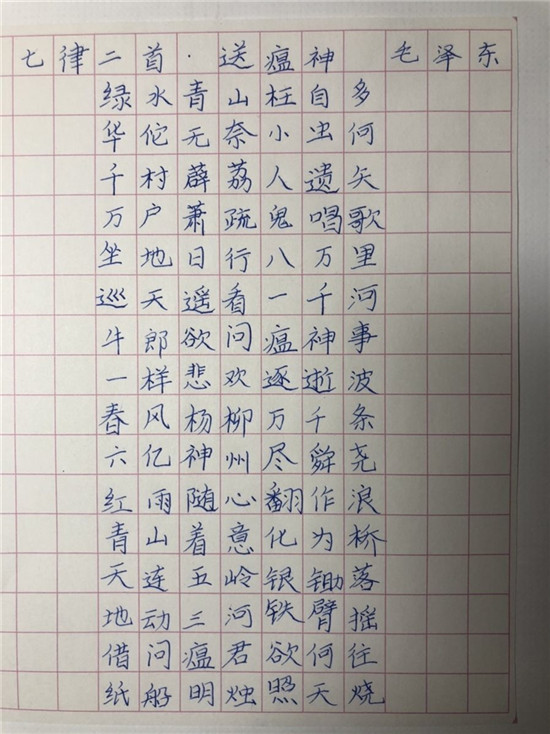 七律二首·送瘟神 毛泽东
绿水青山枉自多
华佗无奈小虫何
千村薜荔人遗矢
万户萧疏鬼唱歌
坐地日行八万里
巡天遥看一千河
牛郎欲问瘟神事
一样悲欢逐逝波
春风杨柳万千条
六亿神州尽舜尧
红雨随心翻作浪
青山着意化为桥
天连五岭银锄落
地动三河铁臂摇
借问瘟君欲何往
纸船明烛照天烧